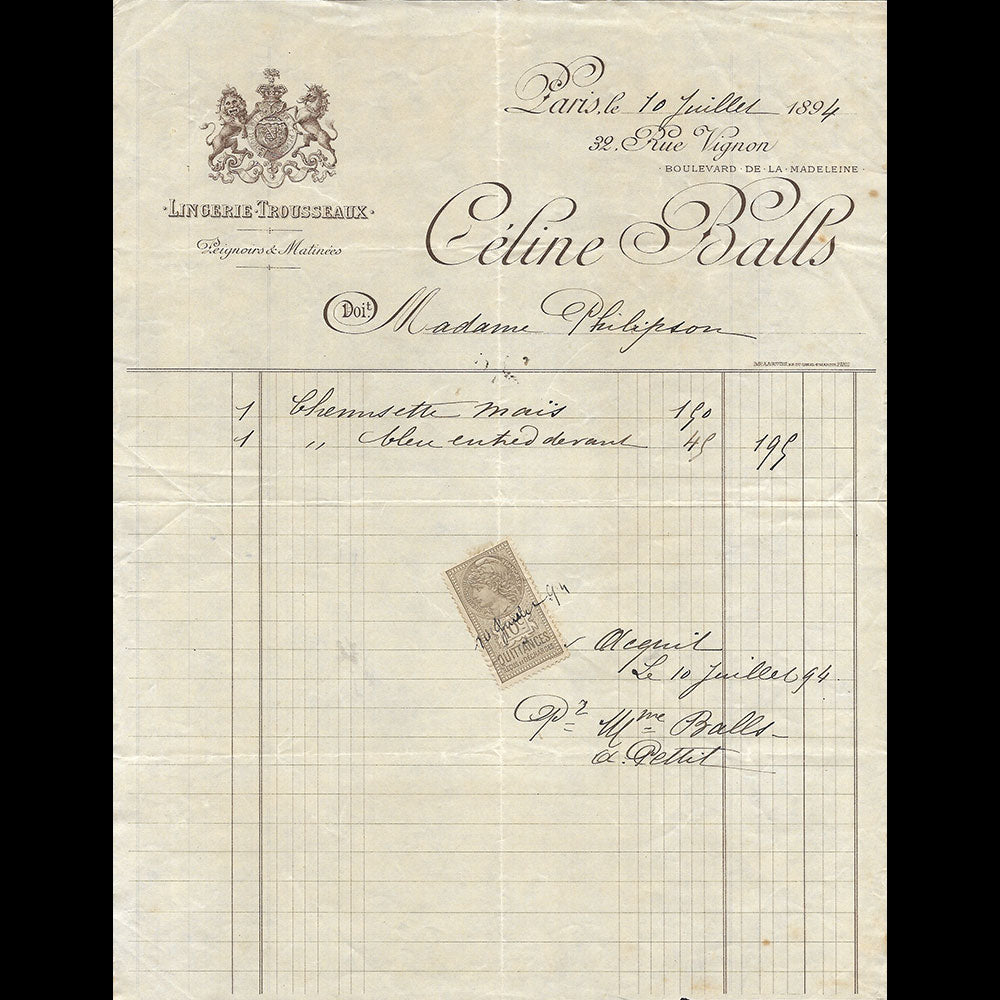 Paris, le 10 Juillet 1894
32, Rue Vignon
·BOULEVARD·DE·LA·MADELEINE·
·LINGERIE·TROUSSEAUX·
Peignoirs & Matinées
Céline Balls
Doit Madame Philipson
1 Chemisette maïs 150
1 " bleu entred devant 45 195
10 Juillet 94
10c
QUITTANCES
Acquit
Le 10 Juillet 94
Pr Mme Balls
a. Pettit